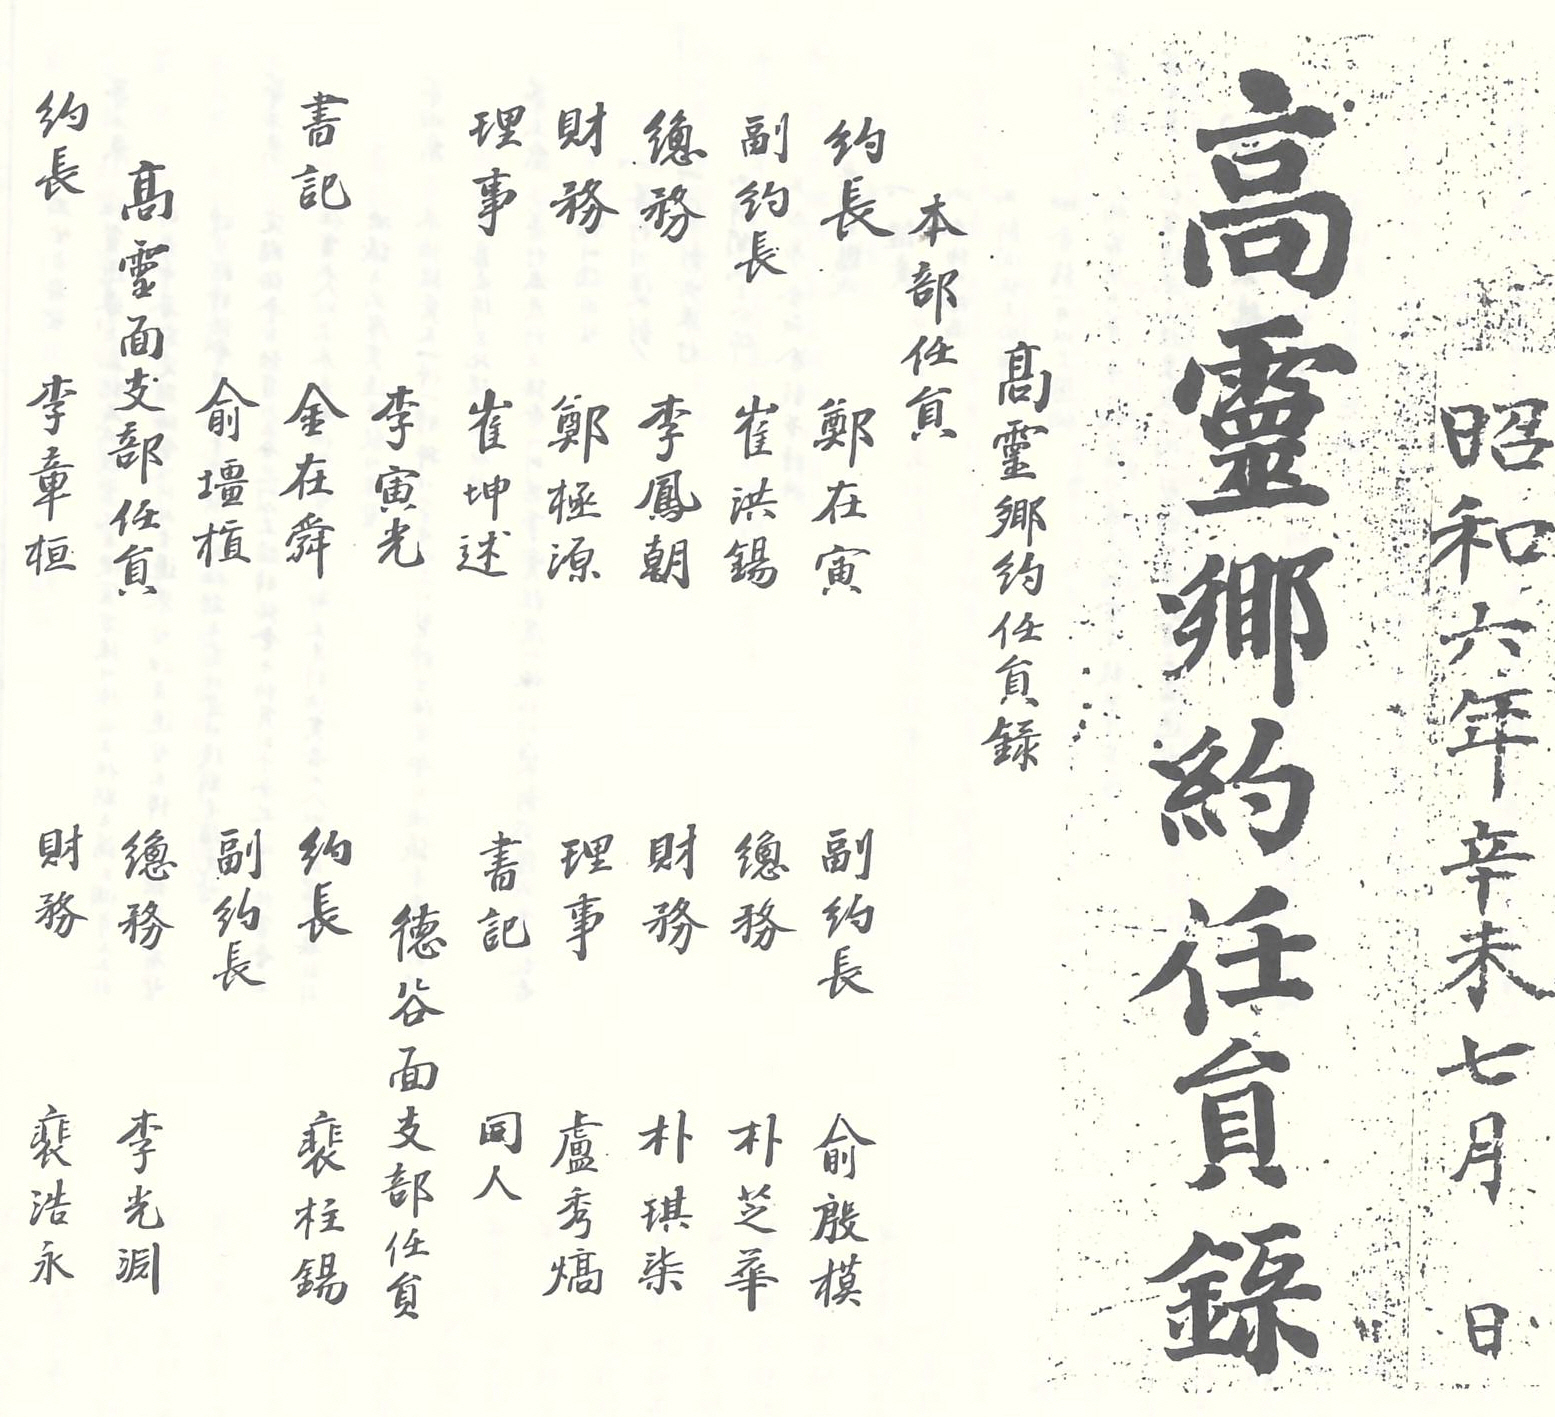 昭和六年辛未七月　日
高靈鄉約任員錄
高靈鄉約任員錄
本部任員
約長　鄭在寅
副約長　崔洪錫
總務　李鳳朝
財務　鄭極源
理事　崔坤述
李寅光
書記　金在舜
俞壃植
高靈面支部任員
約長　李章桓
副約長　俞殷模
總務　朴芝華
財務　朴琪柒
理事　盧秀熇
書記　同人
德谷面支部任員
約長　裵柱錫
副約長
總務　李光淵
財務　裵浩永